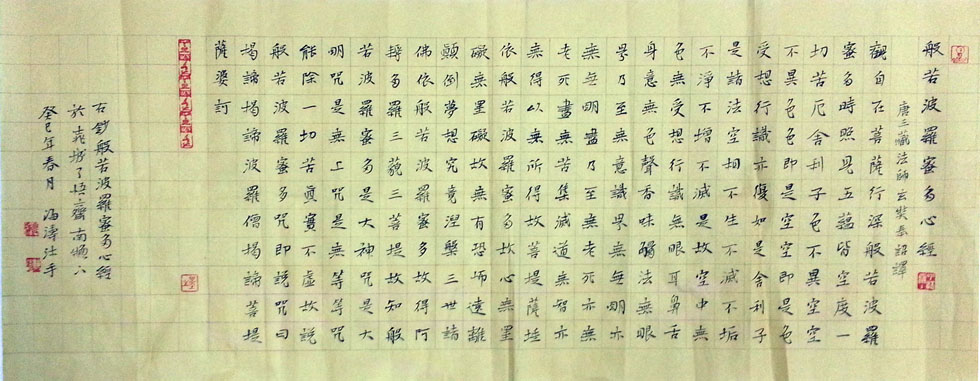 般若波羅蜜多心經
唐三藏法師玄奘奉詔譯
觀自在菩薩行深般若波羅
蜜多時照見五蘊皆空度一
切苦厄舍利子色不異空空
不異色色即是空空即是色
受想行識亦復如是舍利子
是諸法空相不生不滅不垢
不淨不增不減是故空中無
色無受想行識無眼耳鼻舌
身意無色聲香味觸法無眼
界乃至無意識界無無明亦
無無明盡乃至無老死亦無
老死盡無苦集滅道無智亦
無得以無所得故菩提薩埵
依般若波羅蜜多故心無罣
礙無罣礙故無有恐怖遠離
顛倒夢想究竟涅槃三世諸
佛依般若波羅蜜多故得阿
耨多羅三藐三菩提故知般
若波羅蜜多是大神咒是大
明咒是無上咒是無等等咒
能除一切苦真實不虛故說
般若波羅蜜多咒即說咒曰
揭諦揭諦波羅僧揭諦菩提
薩婆訶
右鈔般若波羅蜜多心經
於城了悟齋南
癸巳年春月 沐手